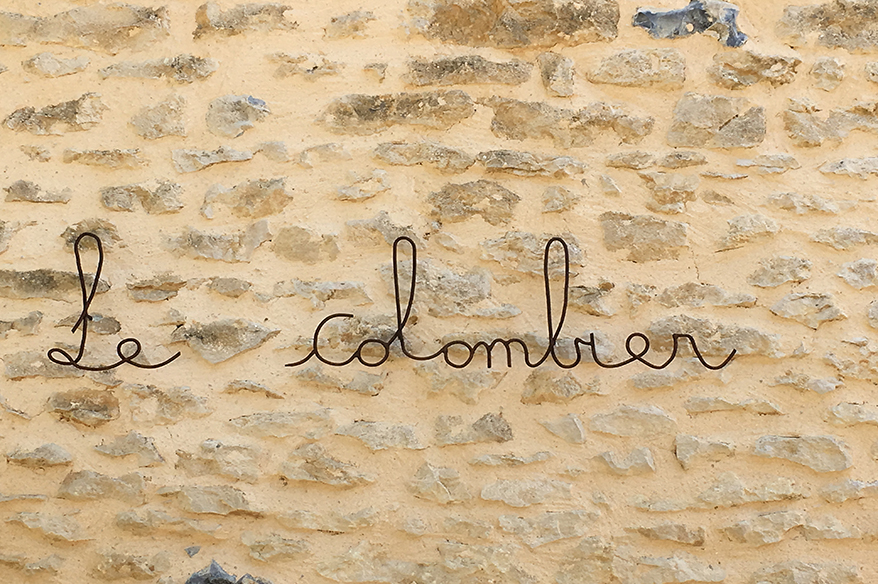 Le colombier